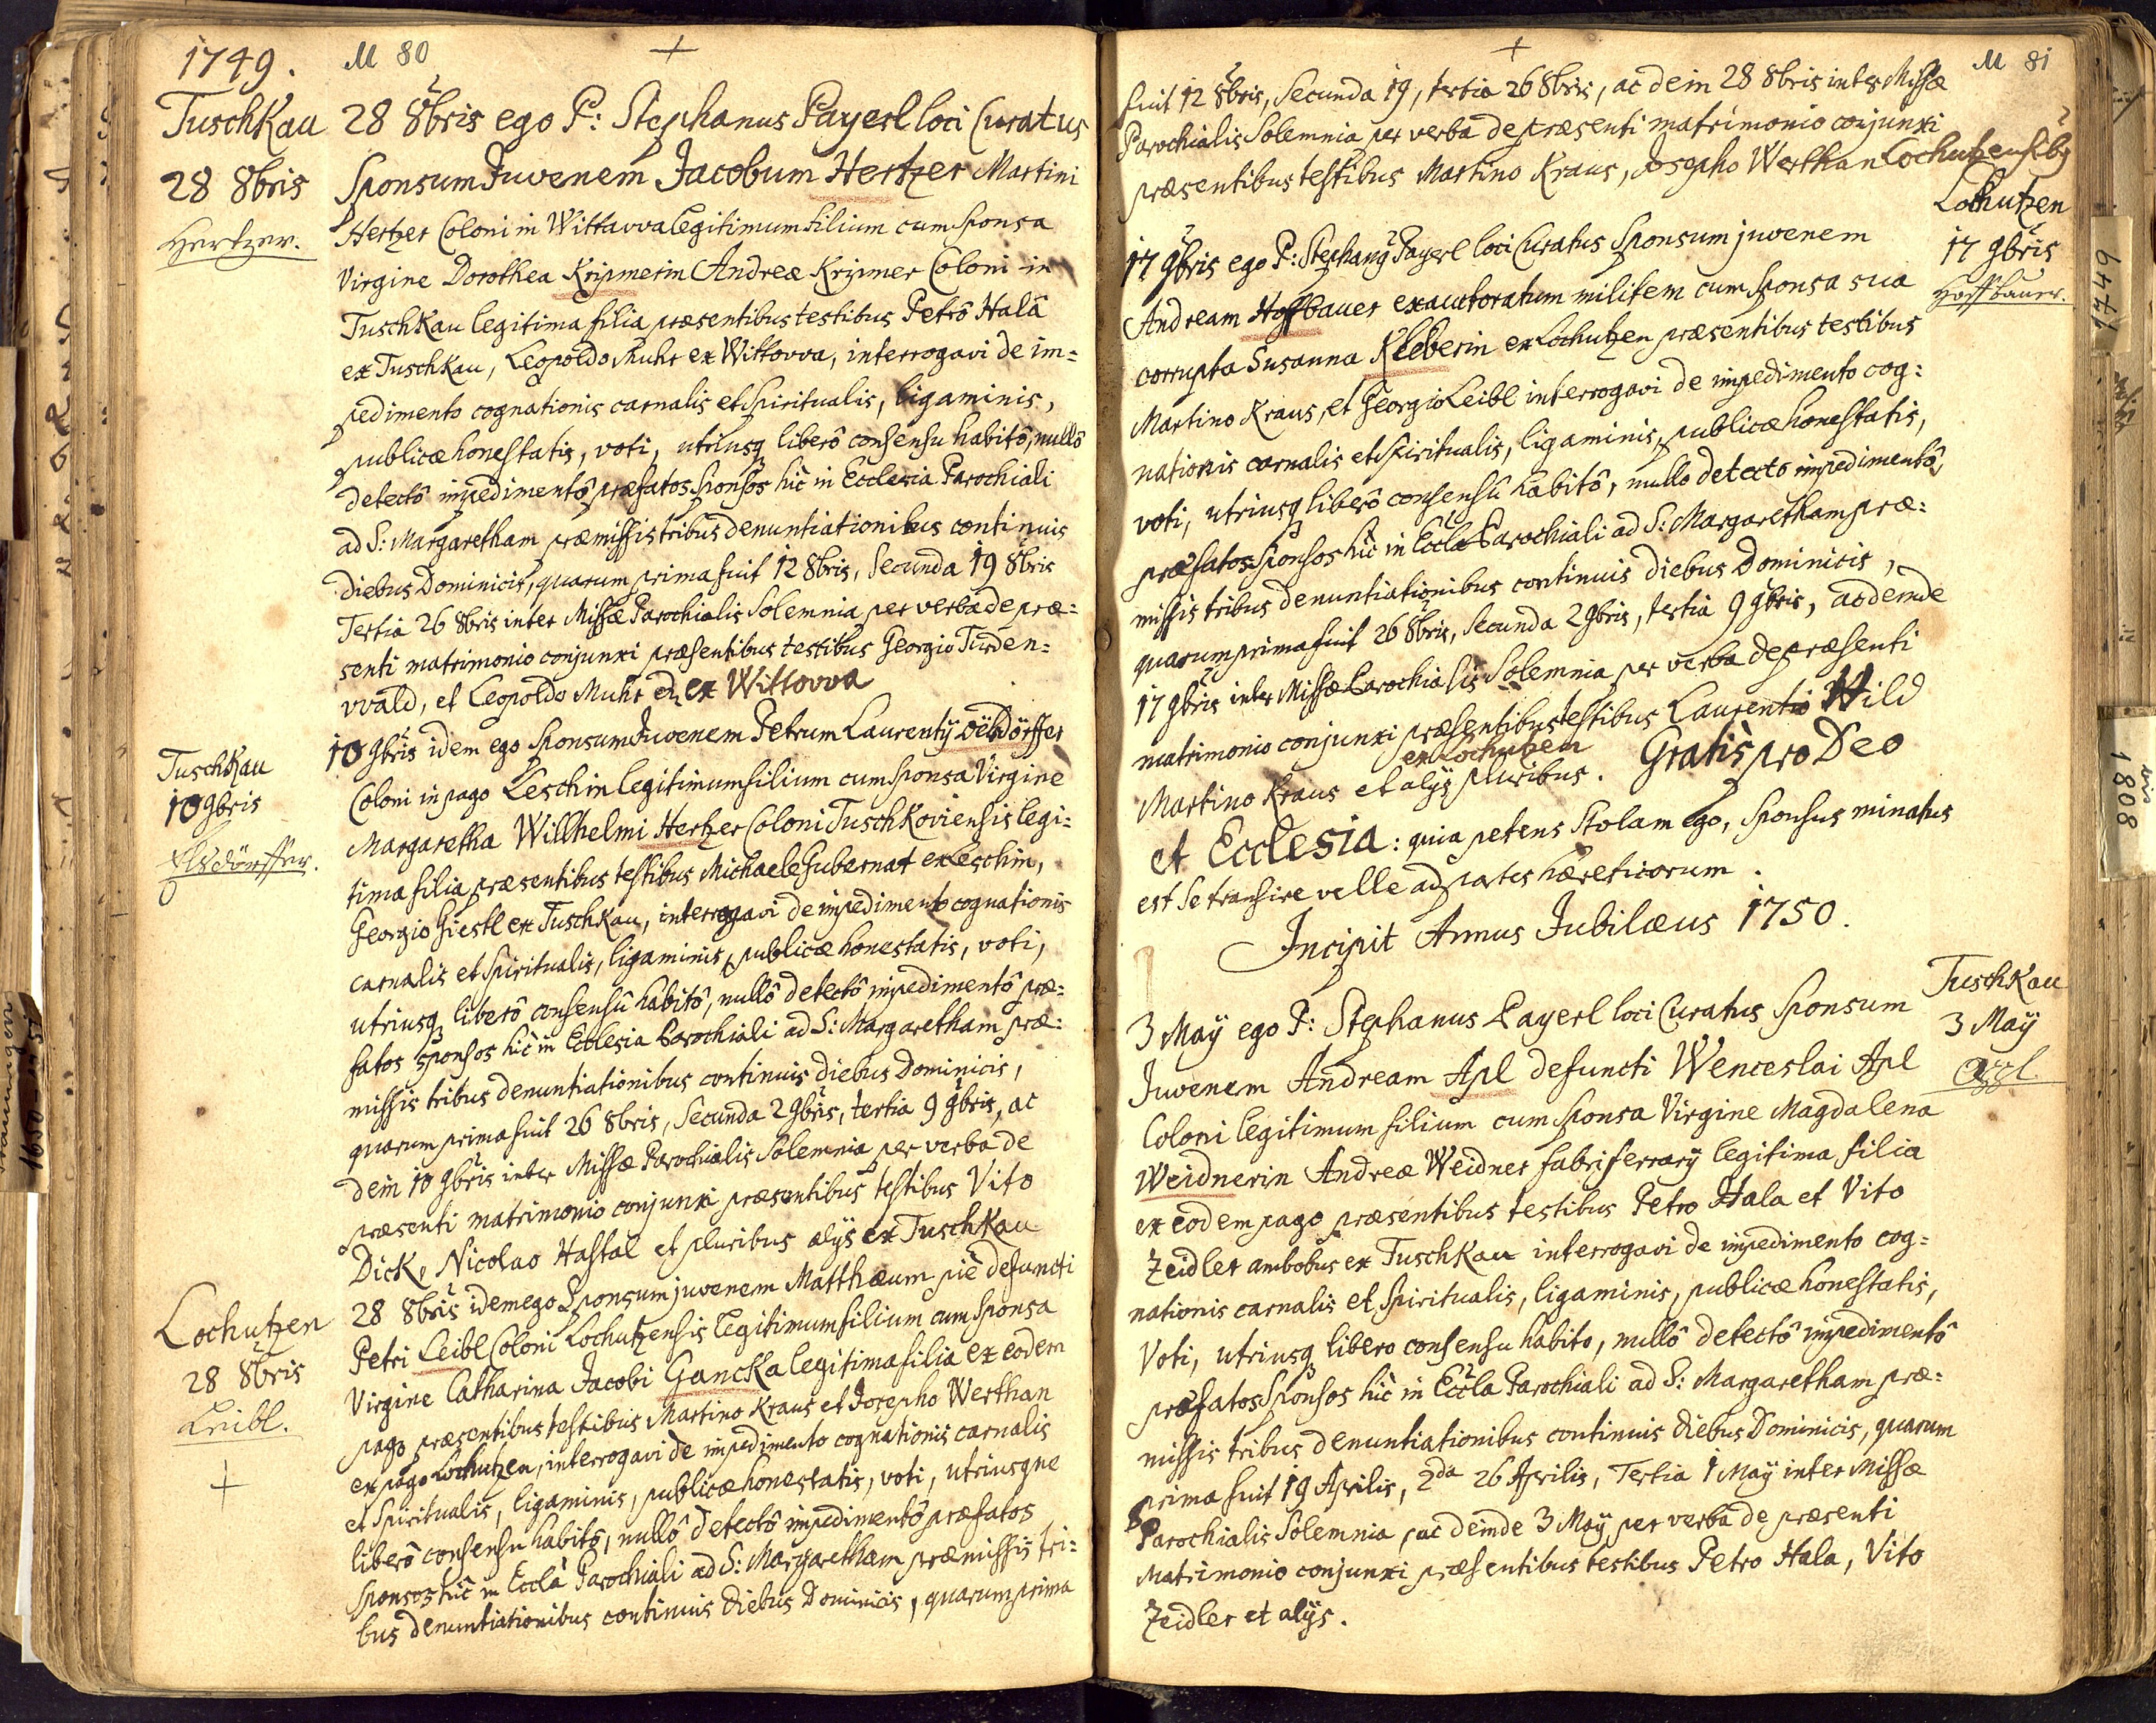 1749. M 80
Tuschkau
28 8bris
Hertzer.
28 8bris ego P: Stephanus Payerl loci Curatus
Sponsum Juvenem Jacobum Hertzer Martini
Hertzer Coloni in Wittavva legitimum filium cum Sponsa
Virgine Dorothea Krizmerin Andreæ Krizmer Coloni in
Tuschkau legitima filia præsentibus testibus Petrô Halâ
ex Tuschkau, Leopoldo Muhr ex Wittovva, interrogavi de im=
pedimento cognationis carnalis et Spiritualis, ligaminis,
publicæ honestatis, voti, utriusq liberô consensu habitô, nullô
detectô impedimentô præfatos Sponsos hîc in Ecclesia Parochiali
ad S: Margaretham præmissis tribus denuntiationibus continuis
diebus Dominicis, quarum prima fuit 12 8bris, Secunda 19 8bris
Tertia 26 8bris inter Missæ Parochialis Solemnia per verba de præ=
senti matrimonio conjunxi præsentibus testibus Georgio Türden=
vvald, et Leopoldo Muhr ex Wittovva
Tuschkau
10 9bris
Elsdörffer.
10 9bris idem ego Sponsum Juvenem Petrum Laurentÿ Oëlsdörffer
Coloni in pago Leschin legitimum filium cum Sponsa Virgine
Margaretha Willhelmi Hertzer Coloni Tuschkoviensis legi=
tima filia præsentibus testibus Michaele Gubernat ex Leschin,
Georgio Giestl ex Tuschkau, interrogavi de impedimento cognationis
carnalis et Spiritualis, ligaminis, publicæ honestatis, voti,
utriusq liberô consensû habitô, nullô detectô impedimentô præ=
fatos sponsos hîc in Ecclesia Parochiali ad S: Margaretham præ=
missis tribus denuntiationibus continuis diebus Dominicis,
quarum prima fuit 26 8bris, Secunda 2 9bris, tertia 9 9bris, ac
dein 10 9bris inter Missæ Parochialis Solemnia per verba de
præsenti matrimonio conjunxi præsentibus testibus Vito
Dick, Nicolao Hastal et pluribus alÿs ex Tuschkau
Lochutzen
28 8bris
Leibl.
28 8bris idem ego Sponsum juvenem Matthæum piè defuncti
Petri Leibl Coloni Lochutzensis legitimum filium cum Sponsa
Virgine Catharina Jacobi Gancka legitima filia ex eodem
pago præsentibus testibus Martino Kraus et Josepho Werthan
ex pago Lochutzen, interrogavi de impedimento cognationis carnalis
et Spiritualis, ligaminis, publicæ honestatis, voti, utriusque
liberô consensu habitô, nullô detectô impedimentô præfatos
Sponsos hîc in Eccla Parochiali ad S: Margaretham præmissis tri=
bus denuntiationibus continuis diebus Dominicis, quarum prima
M 81
fuit 12 8bris, Secunda 19, tertia 26 8bris, ac dein 28 8bris inter Missæ
Parochialis Solemnia per verba de præsenti matrimonio conjunxi
præsentibus testibus Martino Kraus, Josepho Werthan Lochutzensibq
Lochutzen
17 9bris
Hoffbauer.
17 9bris ego P: Stephanq Payerl loci Curatus Sponsum juvenem
Andream Hoffbauer exauctoratum militem cum Sponsa sua
corrupta Susanna Kleberin ex Lochutzen præsentibus testibus
Martino Kraus, et Georgio Leibl interrogavi de impedimento cog=
nationis carnalis et Spiritualis, ligaminis, publicæ honestatis,
voti, utriusq liberô consensû habitô, nullo detecto impedimentô,
præfatos Sponsos hîc in Eccla Parochiali ad S: Margaretham præ=
missis tribus denuntiationibus continuis diebus Dominicis,
quarum prima fuit 26 8bris, Secunda 2 9bris, tertia 9 9bris, ac deinde
17 9bris inter Missæ Parochialis Solemnia per verba de præsenti
matrimonio conjunxi præsentibus testibus Laurentio Wild
ex Lochutzen
Martino Kraus et alÿs pluribus. Gratis pro Deo
et Ecclesia: quia petens Stolam ego, Sponsus minatus
est se transire velle ad partes hæreticorum.
Incipit Annus Jubilæus 1750.
Tuschkau
3 May
Appl.
3 Maÿ ego P: Stephanus Payerl loci Curatus Sponsum
Juvenem Andream Apl defuncti Wenceslai Apl
Coloni legitimum filium cum Sponsa Virgine Magdalena
Weidnerin Andreæ Weidner fabri ferrarÿ legitima filia
ex eodem pago præsentibus testibus Petro Hala et Vito
Zeidler ambobus ex Tuschkau interrogavi de impedimento cog=
nationis carnalis et Spiritualis, ligaminis, publicæ honestatis,
Voti, utriusq libero consensu habito, nullô detectô impedimentô
præfatos Sponsos hîc in Eccla Parochiali ad S: Margaretham præ=
missis tribus denuntiationibus continuis diebus Dominicis, quarum
prima fuit 19 Aprilis, 2da 26 Aprilis, Tertia 1 Maÿ inter Missæ
Parochialis Solemnia, ac deinde 3 Maÿ per verba de præsenti
Matrimonio conjunxi præsentibus testibus Petro Hala, Vito
Zeidler et alÿs.
1650
1749
1808